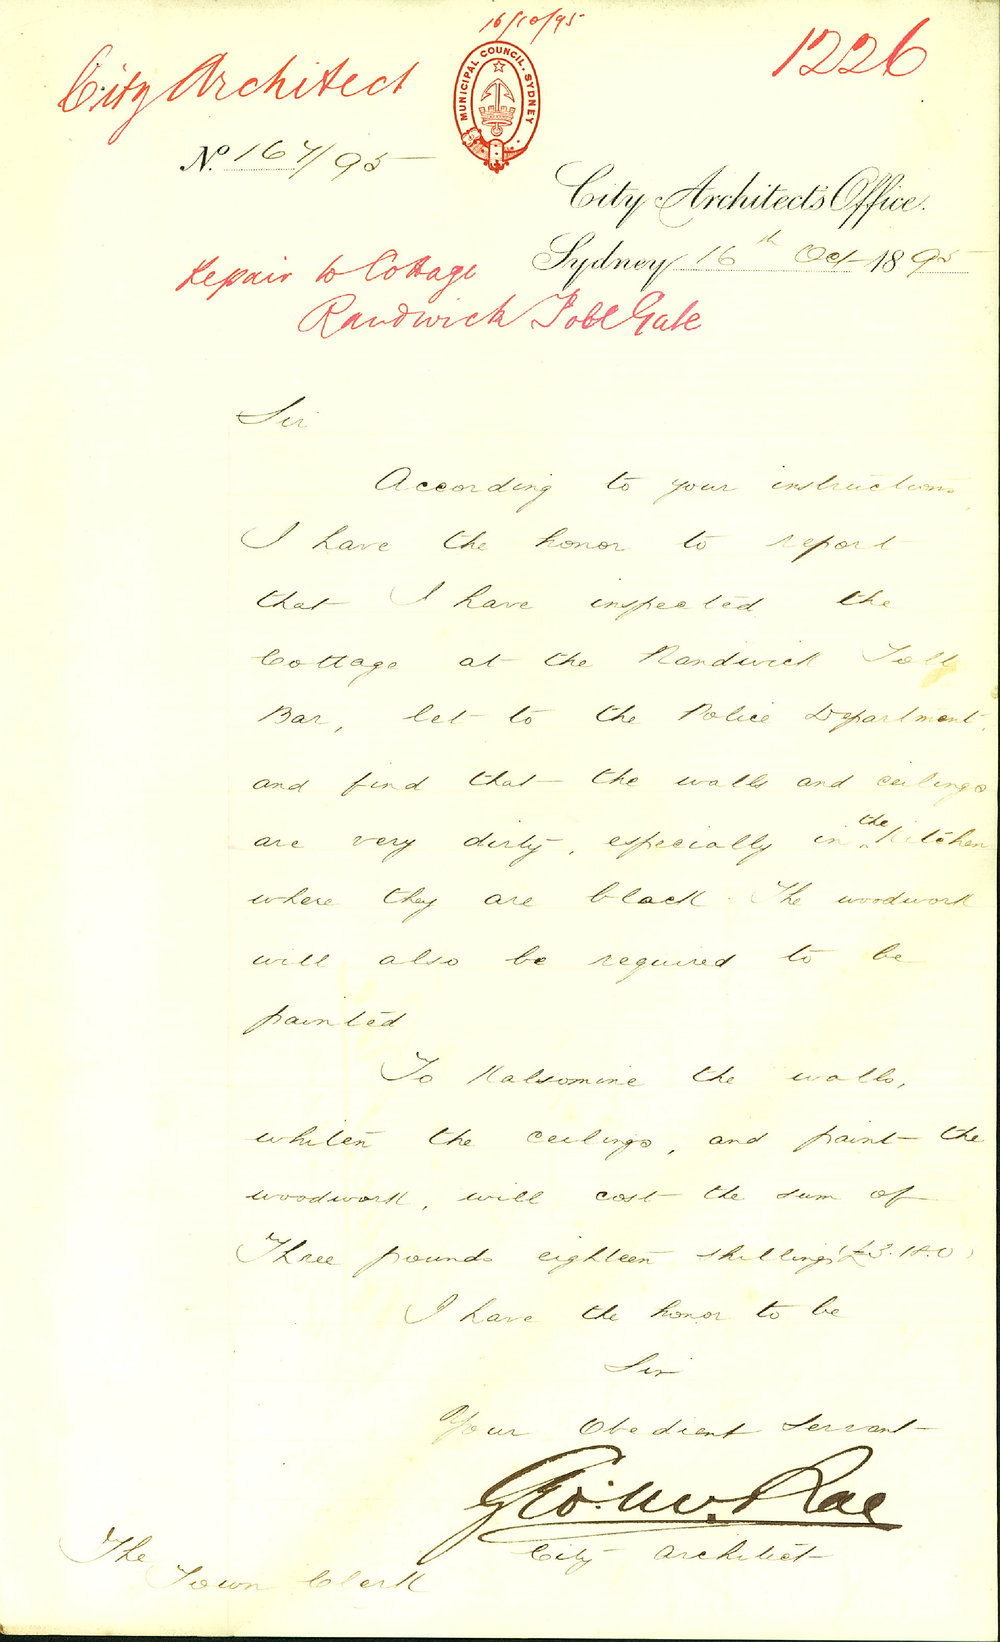 16/10/95
City Architect
1226
MUNICIPAL COUNCIL. SYDNEY
No. 167/95
City Architect's Office.
Sydney 16th Oct 1895
Repair to Cottage
Randwick Toll Gate
Sir
According to your instructions
I have the honor to report
that I have inspected the
Cottage at the Randwick Toll
Bar, let to the Police Department,
and find that the walls and ceilings
are very dirty, especially in the kitchen
where they are black. The woodwork
will also be required to be
painted
To Kalsomine the walls,
whiten the ceilings, and paint the
woodwork, will cost the sum of
Three pounds eighteen shillings (£3.18.0)
I have the honor to be
Sir
Your Obedient Servant
Geo. McRae
City Architect
The
Town Clerk